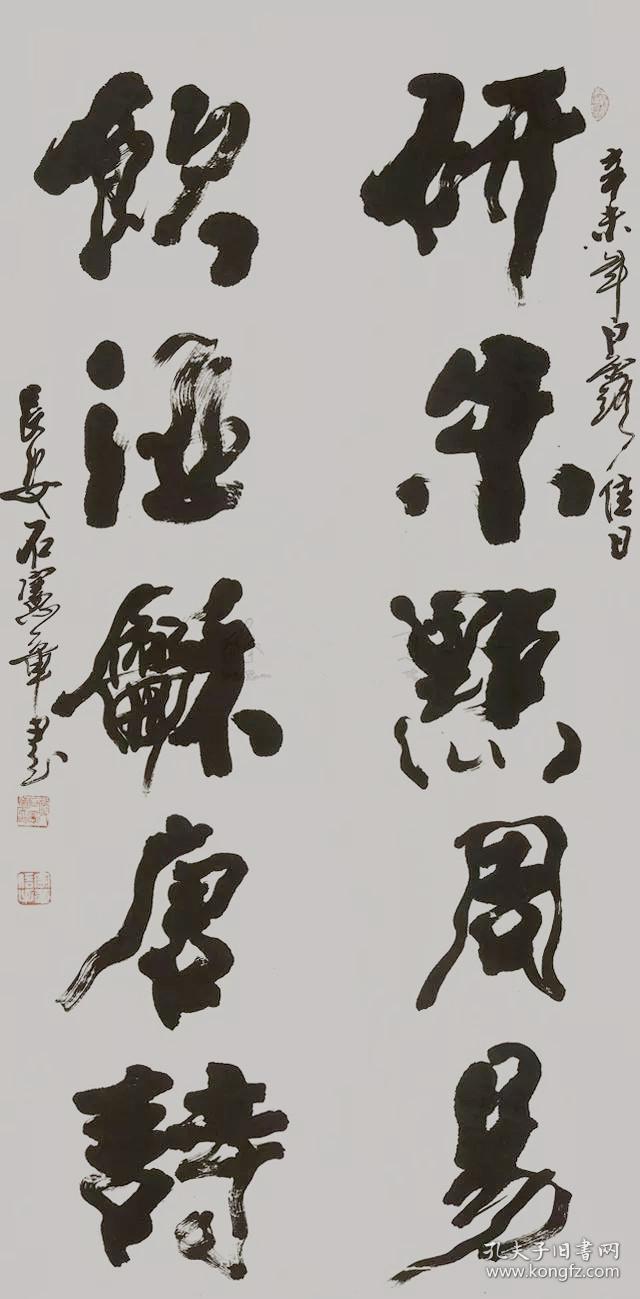 辛未年白露佳日
研朱點周易
飲酒龢唐詩
長安石憲章書
孔夫子旧书网
www.kongfz.com